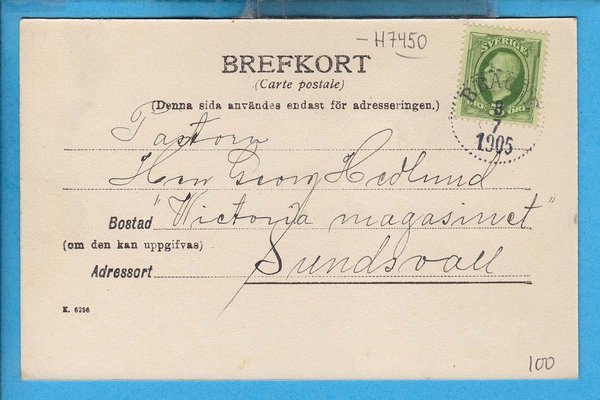 H7450
BREFKORT
(Carte postale)
SVERIGE
(Denna sida användes endast för adresseringen.)
8
7
1905
Pastorn
Herr Georg Hedlund
Bostad "Victoria magasinet"
(om den kan uppgifvas)
Adressort Sundsvall
K. 6296
100